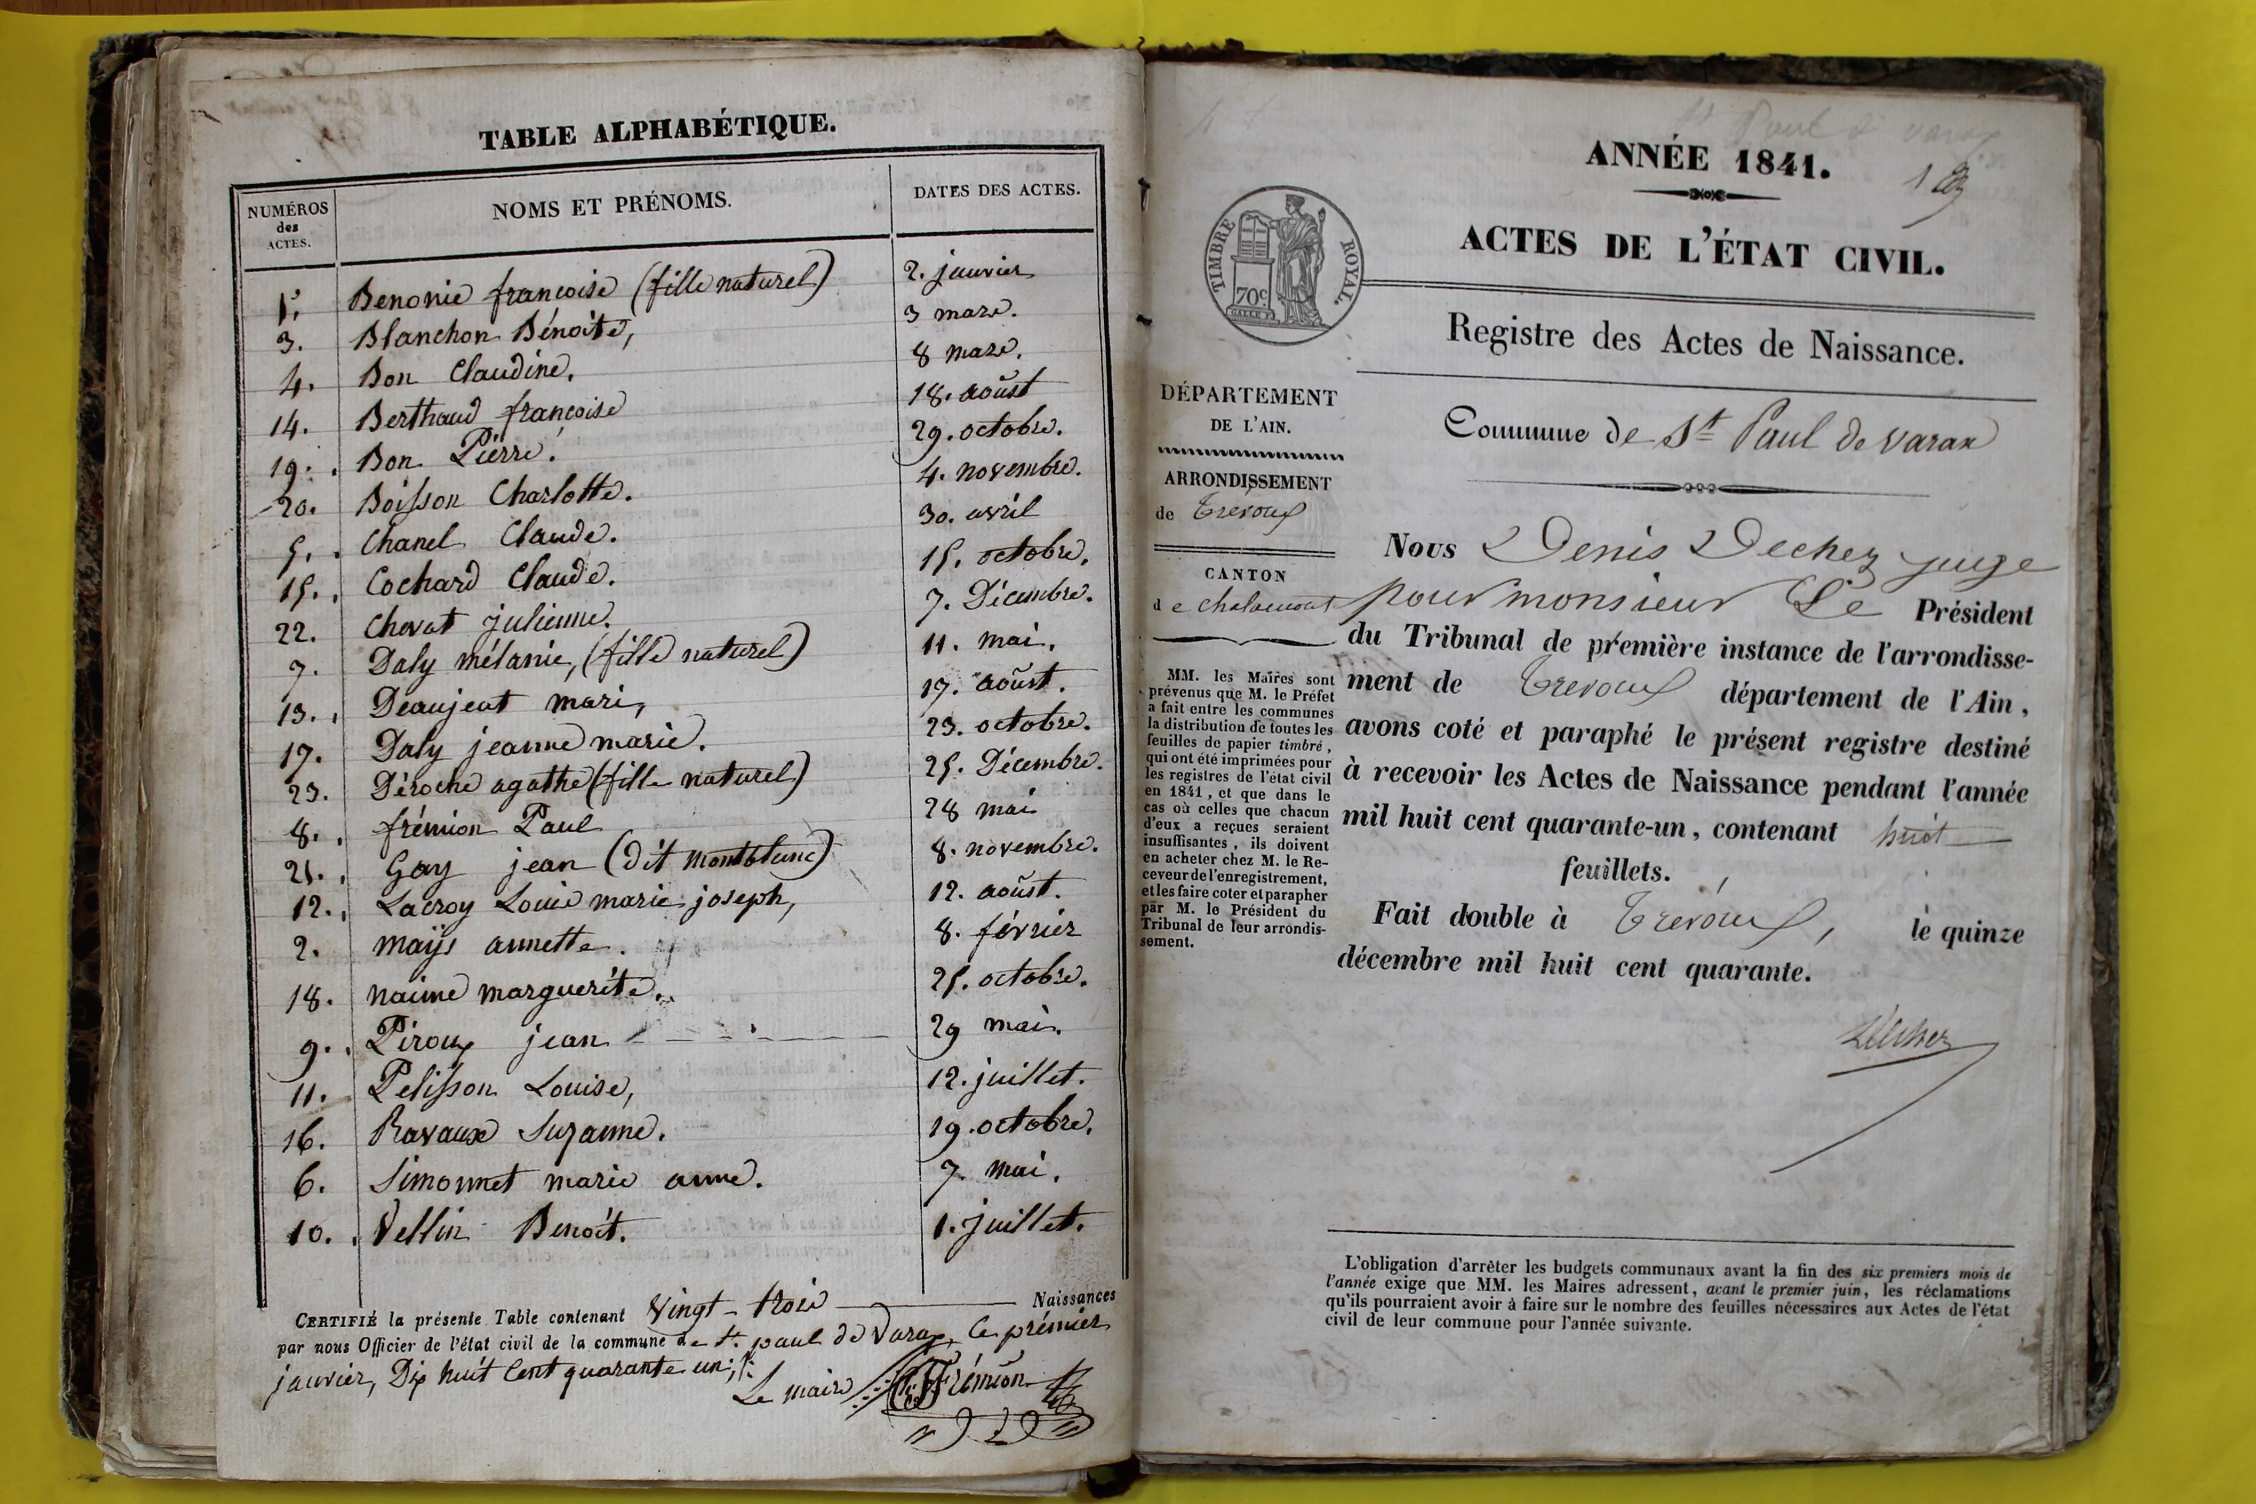 TABLE ALPHABÉTIQUE.
NUMÉROS des ACTES. NOMS ET PRÉNOMS. DATES DES ACTES.
1. Benonie francoise (fille naturel) 2. janvier
3. Blanchon Bénoite, 3 mars.
4. Bon Claudine. 8 mars.
14. Berthaud françoise 18. aoüst
19. Bon Pierre. 29. octobre.
20. Boisson Charlotte. 4. novembre.
5. Chanel Claude. 30. avril
15. Cochard Claude. 15. octobre.
22. Chevat julienne. 7. Décembre.
7. Daly mélanie, (fille naturel) 11. mai.
13. Deaujeat mari, 17. aoüst.
17. Daly jeanne marie. 23. octobre.
23. Déroche agathe (fille naturel) 25. Décembre.
8. frémion Paul 28 mai
21. Gay jean (dit montblanc) 8. novembre.
12. Lacroy Louis marie joseph, 12. aoüst.
2. maÿs annette. 8. février
18. naime marguerite. 25. octobre.
9. Piroux jean 29 mai.
11. Pelisson Louise, 12. juillet.
16. Ravaux Suzanne. 19. octobre.
6. Simonnet marie anne. 7. mai.
10. Vellin Benoit. 1. juillet.
CERTIFIÉ la présente Table contenant Vingt-trois Naissances
par nous Officier de l'état civil de la commune de St. paul de Varax, Ce prémier
janvier, Dix huit Cent quarante un;
Le maire Frémion
St Paul de varax
ANNÉE 1841.
ACTES DE L'ÉTAT CIVIL.
TIMBRE ROYAL.
70c
Registre des Actes de Naissance.
DÉPARTEMENT
DE L'AIN.
ARRONDISSEMENT
de Trevoux
CANTON
de chalamont
MM. les Maires sont
prévenus que M. le Préfet
a fait entre les communes
la distribution de toutes les
feuilles de papier timbré,
qui ont été imprimées pour
les registres de l'état civil
en 1841, et que dans le
cas où celles que chacun
d'eux a reçues seraient
insuffisantes, ils doivent
en acheter chez M. le Re-
ceveur de l'enregistrement,
et les faire coter et parapher
par M. le Président du
Tribunal de leur arrondis-
sement.
Commune de St Paul de varax
Nous Denis Dechez juge
pour monsieur Le Président
du Tribunal de première instance de l'arrondisse-
ment de Trevoux département de l'Ain,
avons coté et paraphé le présent registre destiné
à recevoir les Actes de Naissance pendant l'année
mil huit cent quarante-un, contenant huit
feuillets.
Fait double à Trevoux, le quinze
décembre mil huit cent quarante.
Dechez
L'obligation d'arrêter les budgets communaux avant la fin des six premiers mois de
l'année exige que MM. les Maires adressent, avant le premier juin, les réclamations
qu'ils pourraient avoir à faire sur le nombre des feuilles nécessaires aux Actes de l'état
civil de leur commune pour l'année suivante.